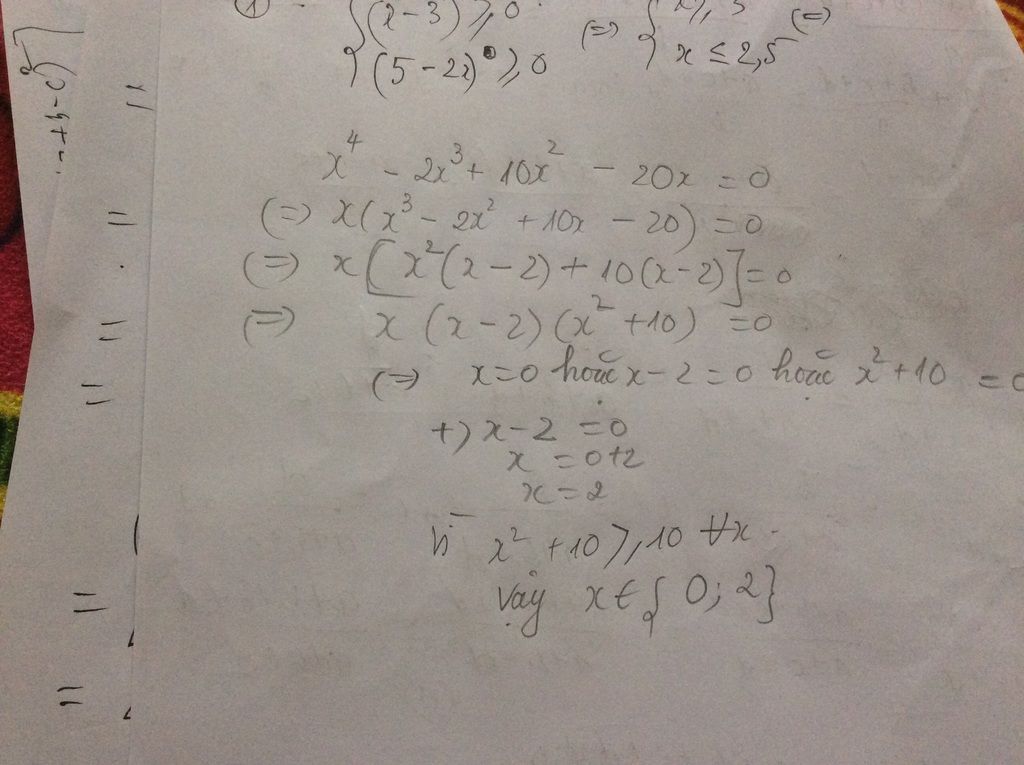 ① {(x-3) ⩾ 0 (=> { x ⩾ 3 (=)
(5-2x) ⩾ 0 x ≤ 2,5
x⁴ - 2x³ + 10x² - 20x = 0
(=) x(x³ - 2x² + 10x - 20) = 0
(=) x[x²(x-2) + 10(x-2)] = 0
(=) x (x-2) (x²+10) = 0
(=) x=0 hoặc x-2=0 hoặc x²+10 = 0
+) x-2 =0
x =0+2
x=2
Vì x² +10 ⩾ 10 ∀x.
Vậy x∈{0; 2}